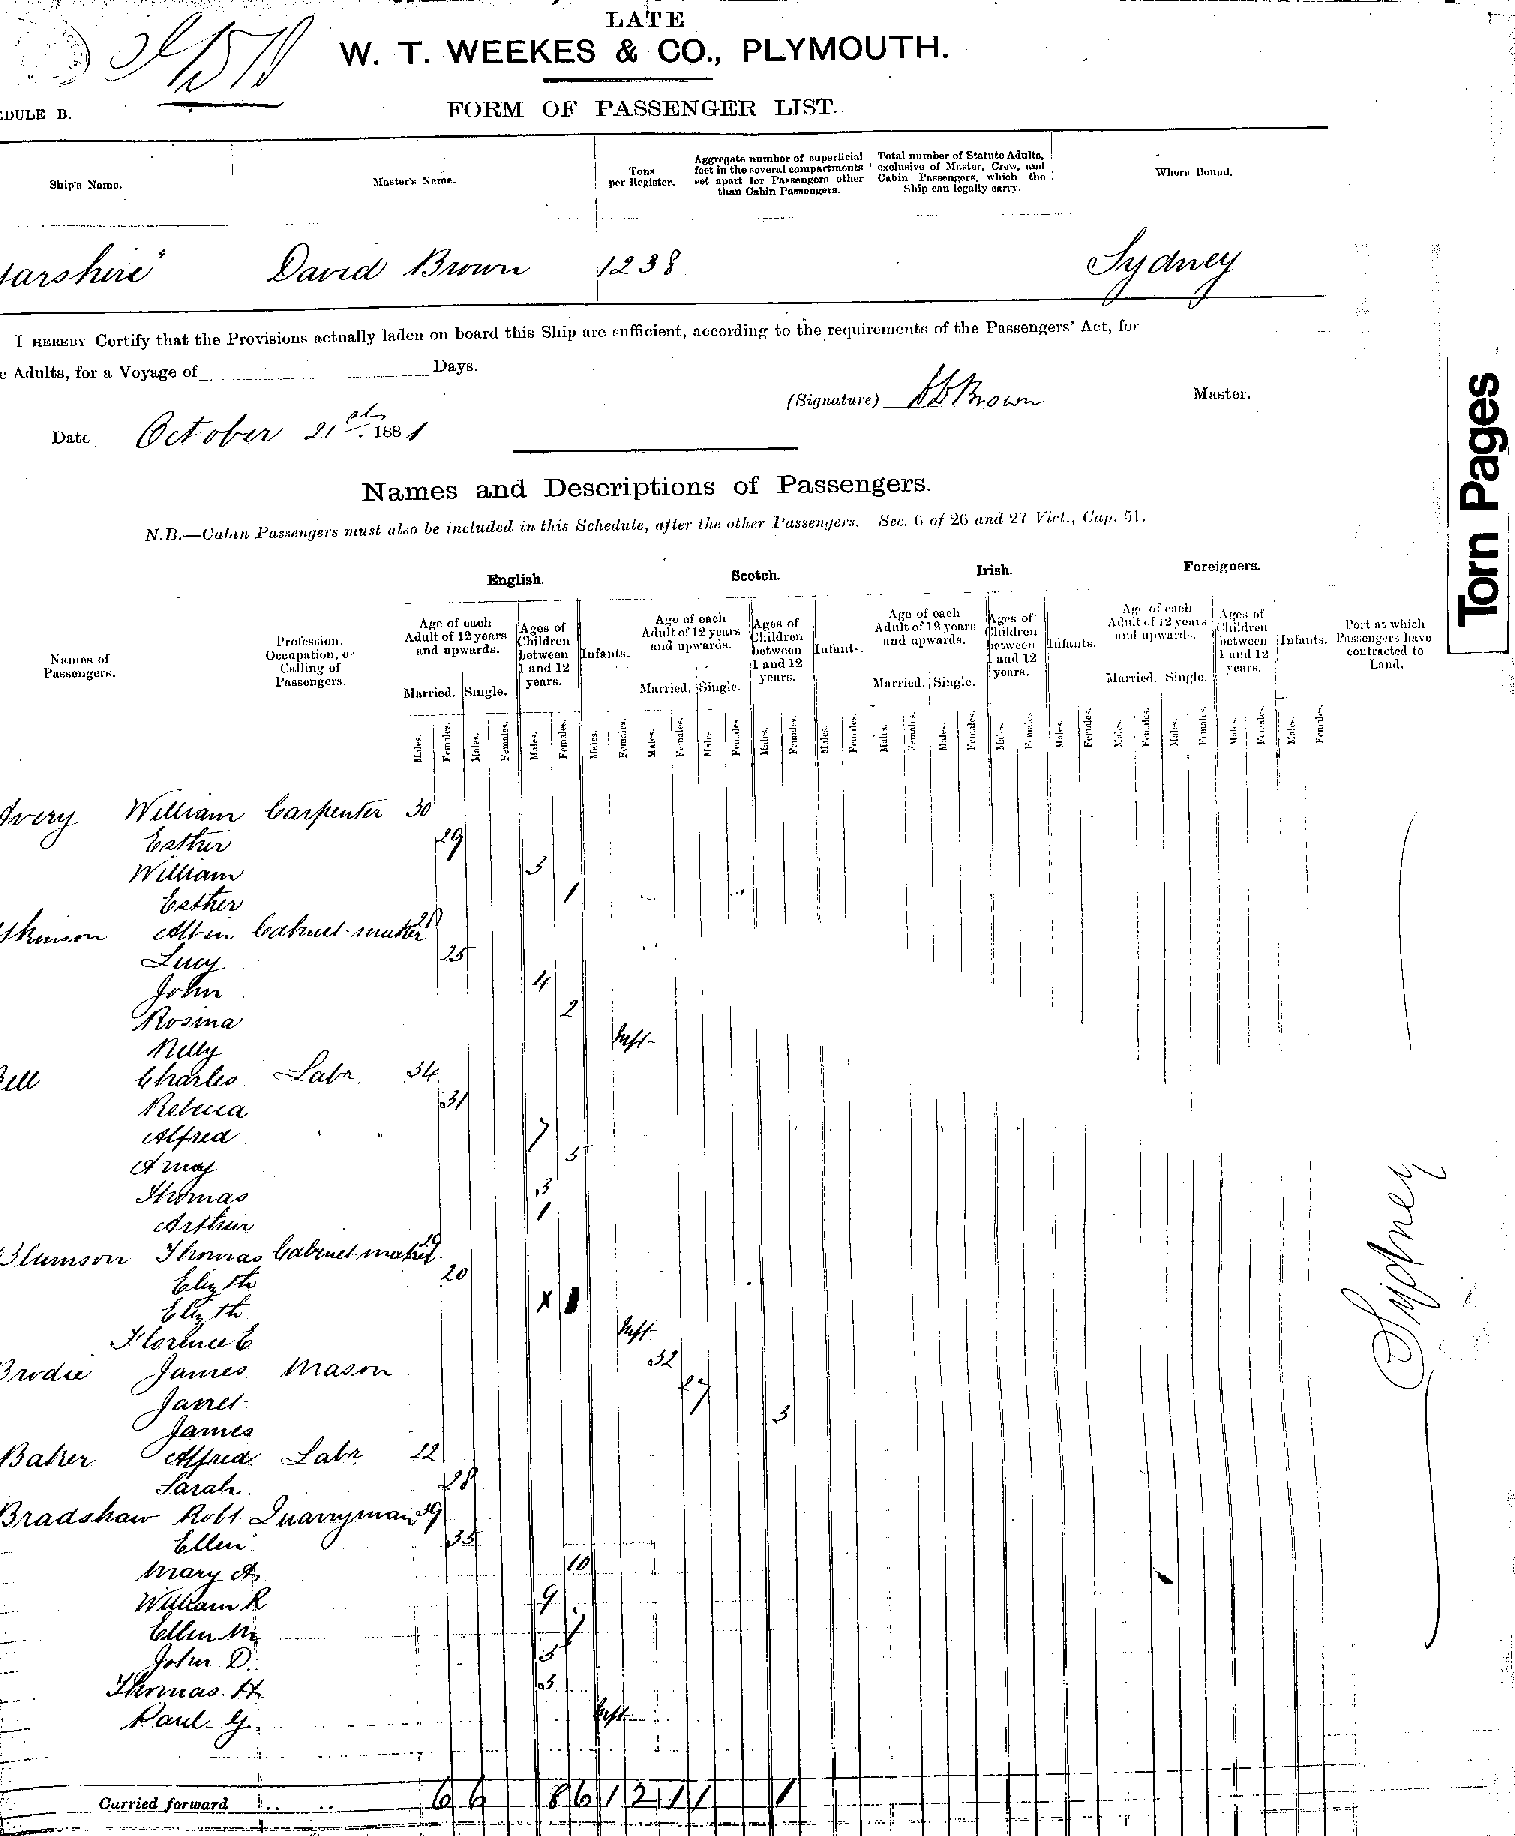 LATE
W. T. WEEKES & CO., PLYMOUTH.
EDULE B.
FORM OF PASSENGER LIST.
Ship's Name.
Master's Name.
Tons per Register.
Aggregate number of superficial feet in the several compartments set apart for Passengers other than Cabin Passengers.
Total number of Statute Adults, exclusive of Master, Crew, and Cabin Passengers, which the Ship can legally carry.
Where Bound.
arshire" David Brown 1238 Sydney
I HEREBY Certify that the Provisions actually laden on board this Ship are sufficient, according to the requirements of the Passengers' Act, for
e Adults, for a Voyage of Days.
(Signature) Brown Master.
Date October 21st 1881
Torn Pages
Names and Descriptions of Passengers.
N.B.—Cabin Passengers must also be included in this Schedule, after the other Passengers. Sec. 6 of 26 and 27 Vict., Cap. 51.
English. Scotch. Irish. Foreigners.
Names of Passengers.
Profession, Occupation, or Calling of Passengers.
Age of each Adult of 12 years and upwards. Ages of Children between 1 and 12 years. Infants.
Age of each Adult of 12 years and upwards. Ages of Children between 1 and 12 years. Infants.
Age of each Adult of 12 years and upwards. Ages of Children between 1 and 12 years. Infants.
Age of each Adult of 12 years and upwards. Ages of Children between 1 and 12 years. Infants.
Port at which Passengers have contracted to Land.
Married. Single. Married. Single. Married. Single. Married. Single.
Males. Females. Males. Females. Males. Females. Males. Females. Males. Females. Males. Females. Males. Females. Males. Females. Males. Females. Males. Females. Males. Females. Males. Females. Males. Females. Males. Females. Males. Females. Males. Females.
Avery William Carpenter 30
Esther 29
William 3
Esther 1
tkinson Cabinet maker
Lucy 25
John 4
Rosina 2
Nelly Inft
Bell Charles Labr 34
Rebecca 31
Alfred 7
Amy 5
Thomas 3
Arthur 1
Blumson Thomas Cabinet maker
Elizth 20
Elizth
Florence E Inft
Brodie James Mason 32
Janet 27
James 3
Baker Alfred Labr 22
Sarah 28
Bradshaw Robt Quarryman 39
Ellen 35
Mary A 10
William R 9
Ellen M 7
John D. 5
Thomas H. 3
Paul G. Inft
Sydney
Carried forward .. .. 6 6 8 6 1 2 1 1 1